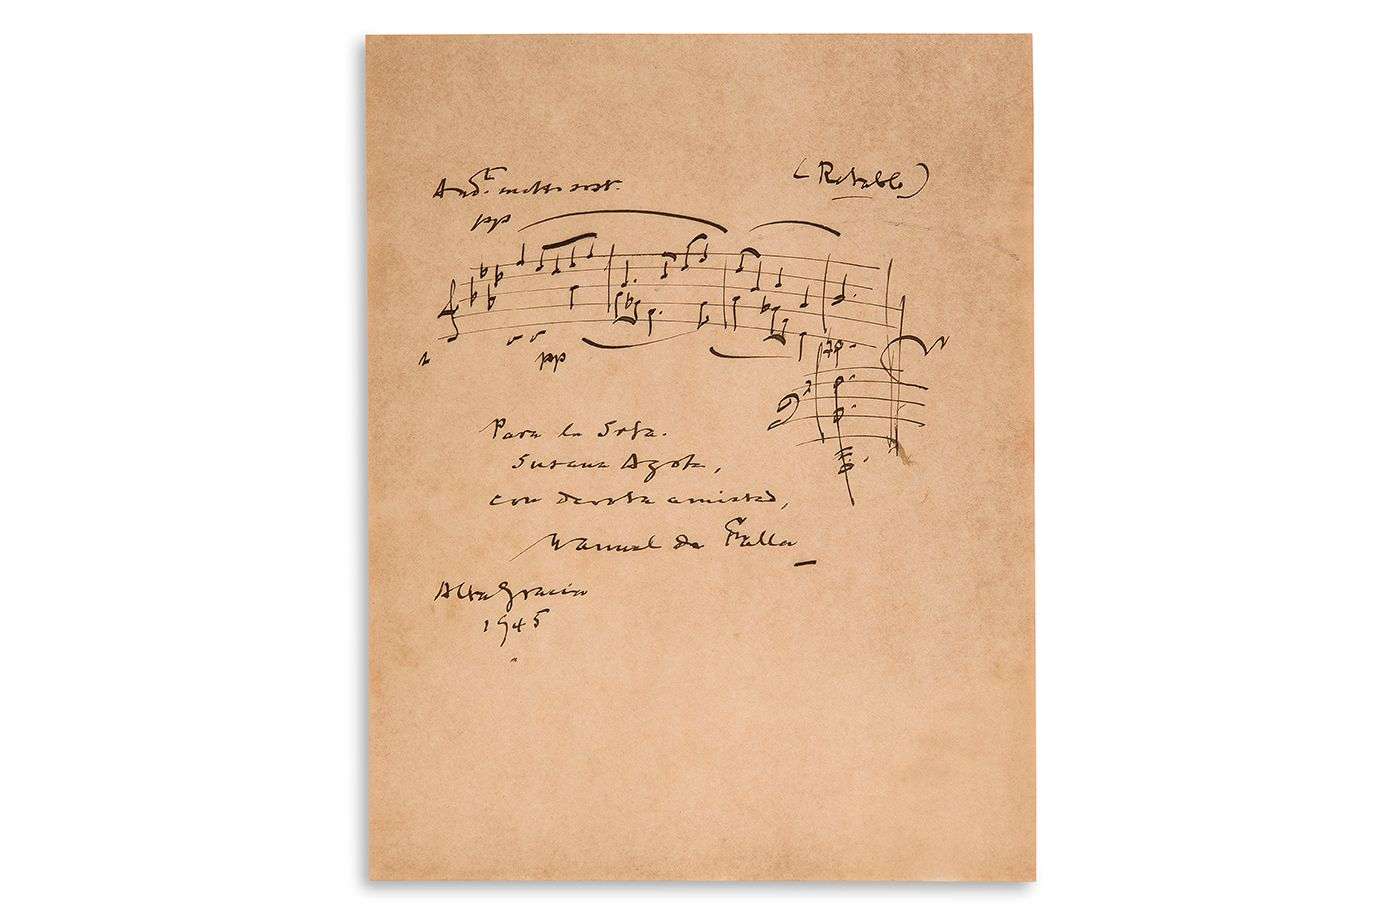 Andte. molto sost.
(Retablo)
pp
pp
Para la Srta.
Susana Agote,
con devota amistad,
Manuel de Falla
Alta Gracia
1945